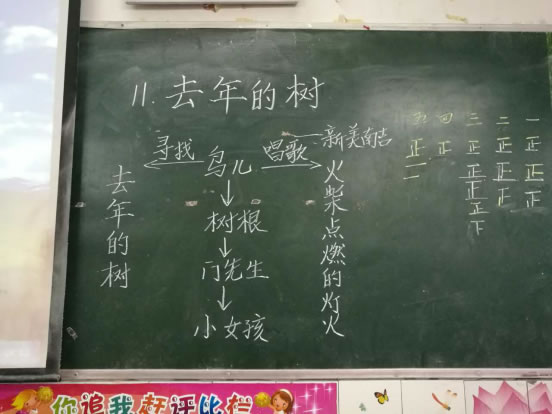 11.去年的树
寻找
鸟儿
唱歌
新美南吉
去年的树
树根
门先生
小女孩
火柴点燃的灯火
一正正正
二正正正
三正正正正下
四正
五正
你追我赶评比栏